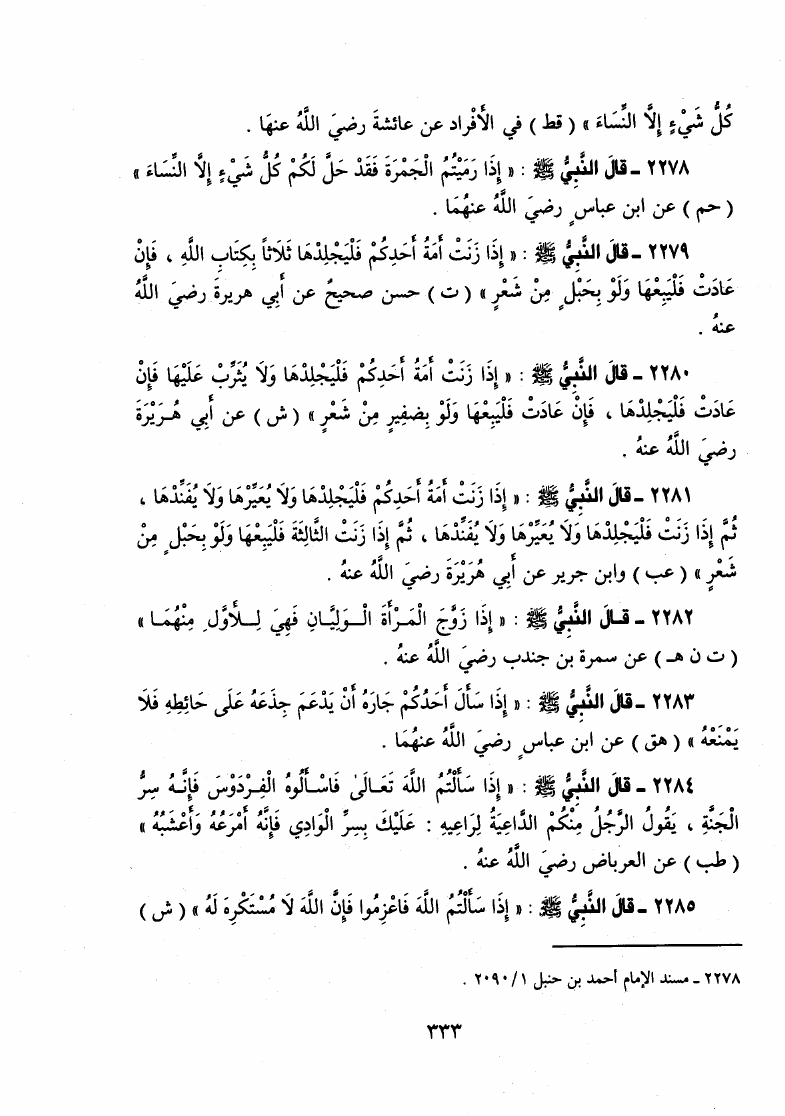 كُلُّ شَيْءٍ إِلَّا النِّسَاءَ » ( قط ) في الأَفْراد عن عائشةَ رضيَ اللَّهُ عنها .
٢٢٧٨ ـ قالَ النَّبِيُّ ﷺ : « إِذَا رَمَيْتُمُ الْجَمْرَةَ فَقَدْ حَلَّ لَكُمْ كُلُّ شَيْءٍ إِلَّا النِّسَاءَ »
( حم ) عن ابن عباسٍ رضيَ اللَّهُ عنهُمَا .
٢٢٧٩ ـ قالَ النَّبِيُّ ﷺ : « إِذَا زَنَتْ أَمَةُ أَحَدِكُمْ فَلْيَجْلِدْهَا ثَلَاثاً بِكِتَابِ اللَّهِ ، فَإِنْ
عَادَتْ فَلْيَبِعْهَا وَلَوْ بِحَبْلٍ مِنْ شَعْرٍ » ( ت ) حسن صحيحٌ عن أبي هريرةَ رضيَ اللَّهُ
عنهُ .
٢٢٨٠ ـ قالَ النَّبِيُّ ﷺ : « إِذَا زَنَتْ أَمَةُ أَحَدِكُمْ فَلْيَجْلِدْهَا وَلَا يُثَرِّبْ عَلَيْهَا فَإِنْ
عَادَتْ فَلْيَجْلِدْهَا ، فَإِنْ عَادَتْ فَلْيَبِعْهَا وَلَوْ بِضَفِيرٍ مِنْ شَعْرٍ » ( ش ) عن أَبي هُـرَيْرَةَ
رضيَ اللَّهُ عنهُ .
٢٢٨١ ـ قالَ النَّبِيُّ ﷺ : « إِذَا زَنَتْ أَمَةُ أَحَدِكُمْ فَلْيَجْلِدْهَا وَلَا يُعَيِّرْهَا وَلَا يُفَنِّدْهَا ،
ثُمَّ إِذَا زَنَتْ فَلْيَجْلِدْهَا وَلَا يُعَيِّرْهَا وَلَا يُفَنِّدْهَا ، ثُمَّ إِذَا زَنَتْ الثَّالِثَةَ فَلْيَبِعْهَا وَلَوْ بِحَبْلٍ مِنْ
شَعْرٍ » ( عب ) وابن جرير عن أَبي هُرَيْرَةَ رضيَ اللَّهُ عنهُ .
٢٢٨٢ ـ قـالَ النَّبِيُّ ﷺ : « إِذَا زَوَّجَ الْمَـرْأَةَ الْـوَلِيَّـانِ فَهِيَ لِـلْأَوَّلِ مِنْهُمَـا »
( ت ن هـ ) عن سمرة بن جندب رضيَ اللَّهُ عنهُ .
٢٢٨٣ ـ قالَ النَّبِيُّ ﷺ : « إِذَا سَأَلَ أَحَدُكُمْ جَارَهُ أَنْ يَدْعَمَ جِذْعَهُ عَلَى حَائِطِهِ فَلَا
يَمْنَعْهُ » ( هق ) عن ابن عباسٍ رضيَ اللَّهُ عنهُمَا .
٢٢٨٤ ـ قالَ النَّبِيُّ ﷺ : « إِذَا سَأَلْتُمُ اللَّهَ تَعَـالَىٰ فَاسْـأَلُوهُ الْفِـرْدَوْسَ فَإِنَّـهُ سِرُّ
الْجَنَّةِ ، يَقُولُ الرَّجُلُ مِنْكُمْ الدَّاعِيَةُ لِرَاعِيهِ : عَلَيْكَ بِسِرِّ الْوَادِي فَإِنَّهُ أَمْرَعُهُ وَأَعْشَبُهُ »
( طب ) عن العرباض رضيَ اللَّهُ عنهُ .
٢٢٨٥ ـ قالَ النَّبِيُّ ﷺ : « إِذَا سَأَلْتُمُ اللَّهَ فَاعْزِمُوا فَإِنَّ اللَّهَ لَا مُسْتَكْرِهَ لَهُ » ( ش )
٢٢٧٨ ـ مسند الإمام أحمد بن حنبل ١/٢٠٩٠ .
٣٣٣